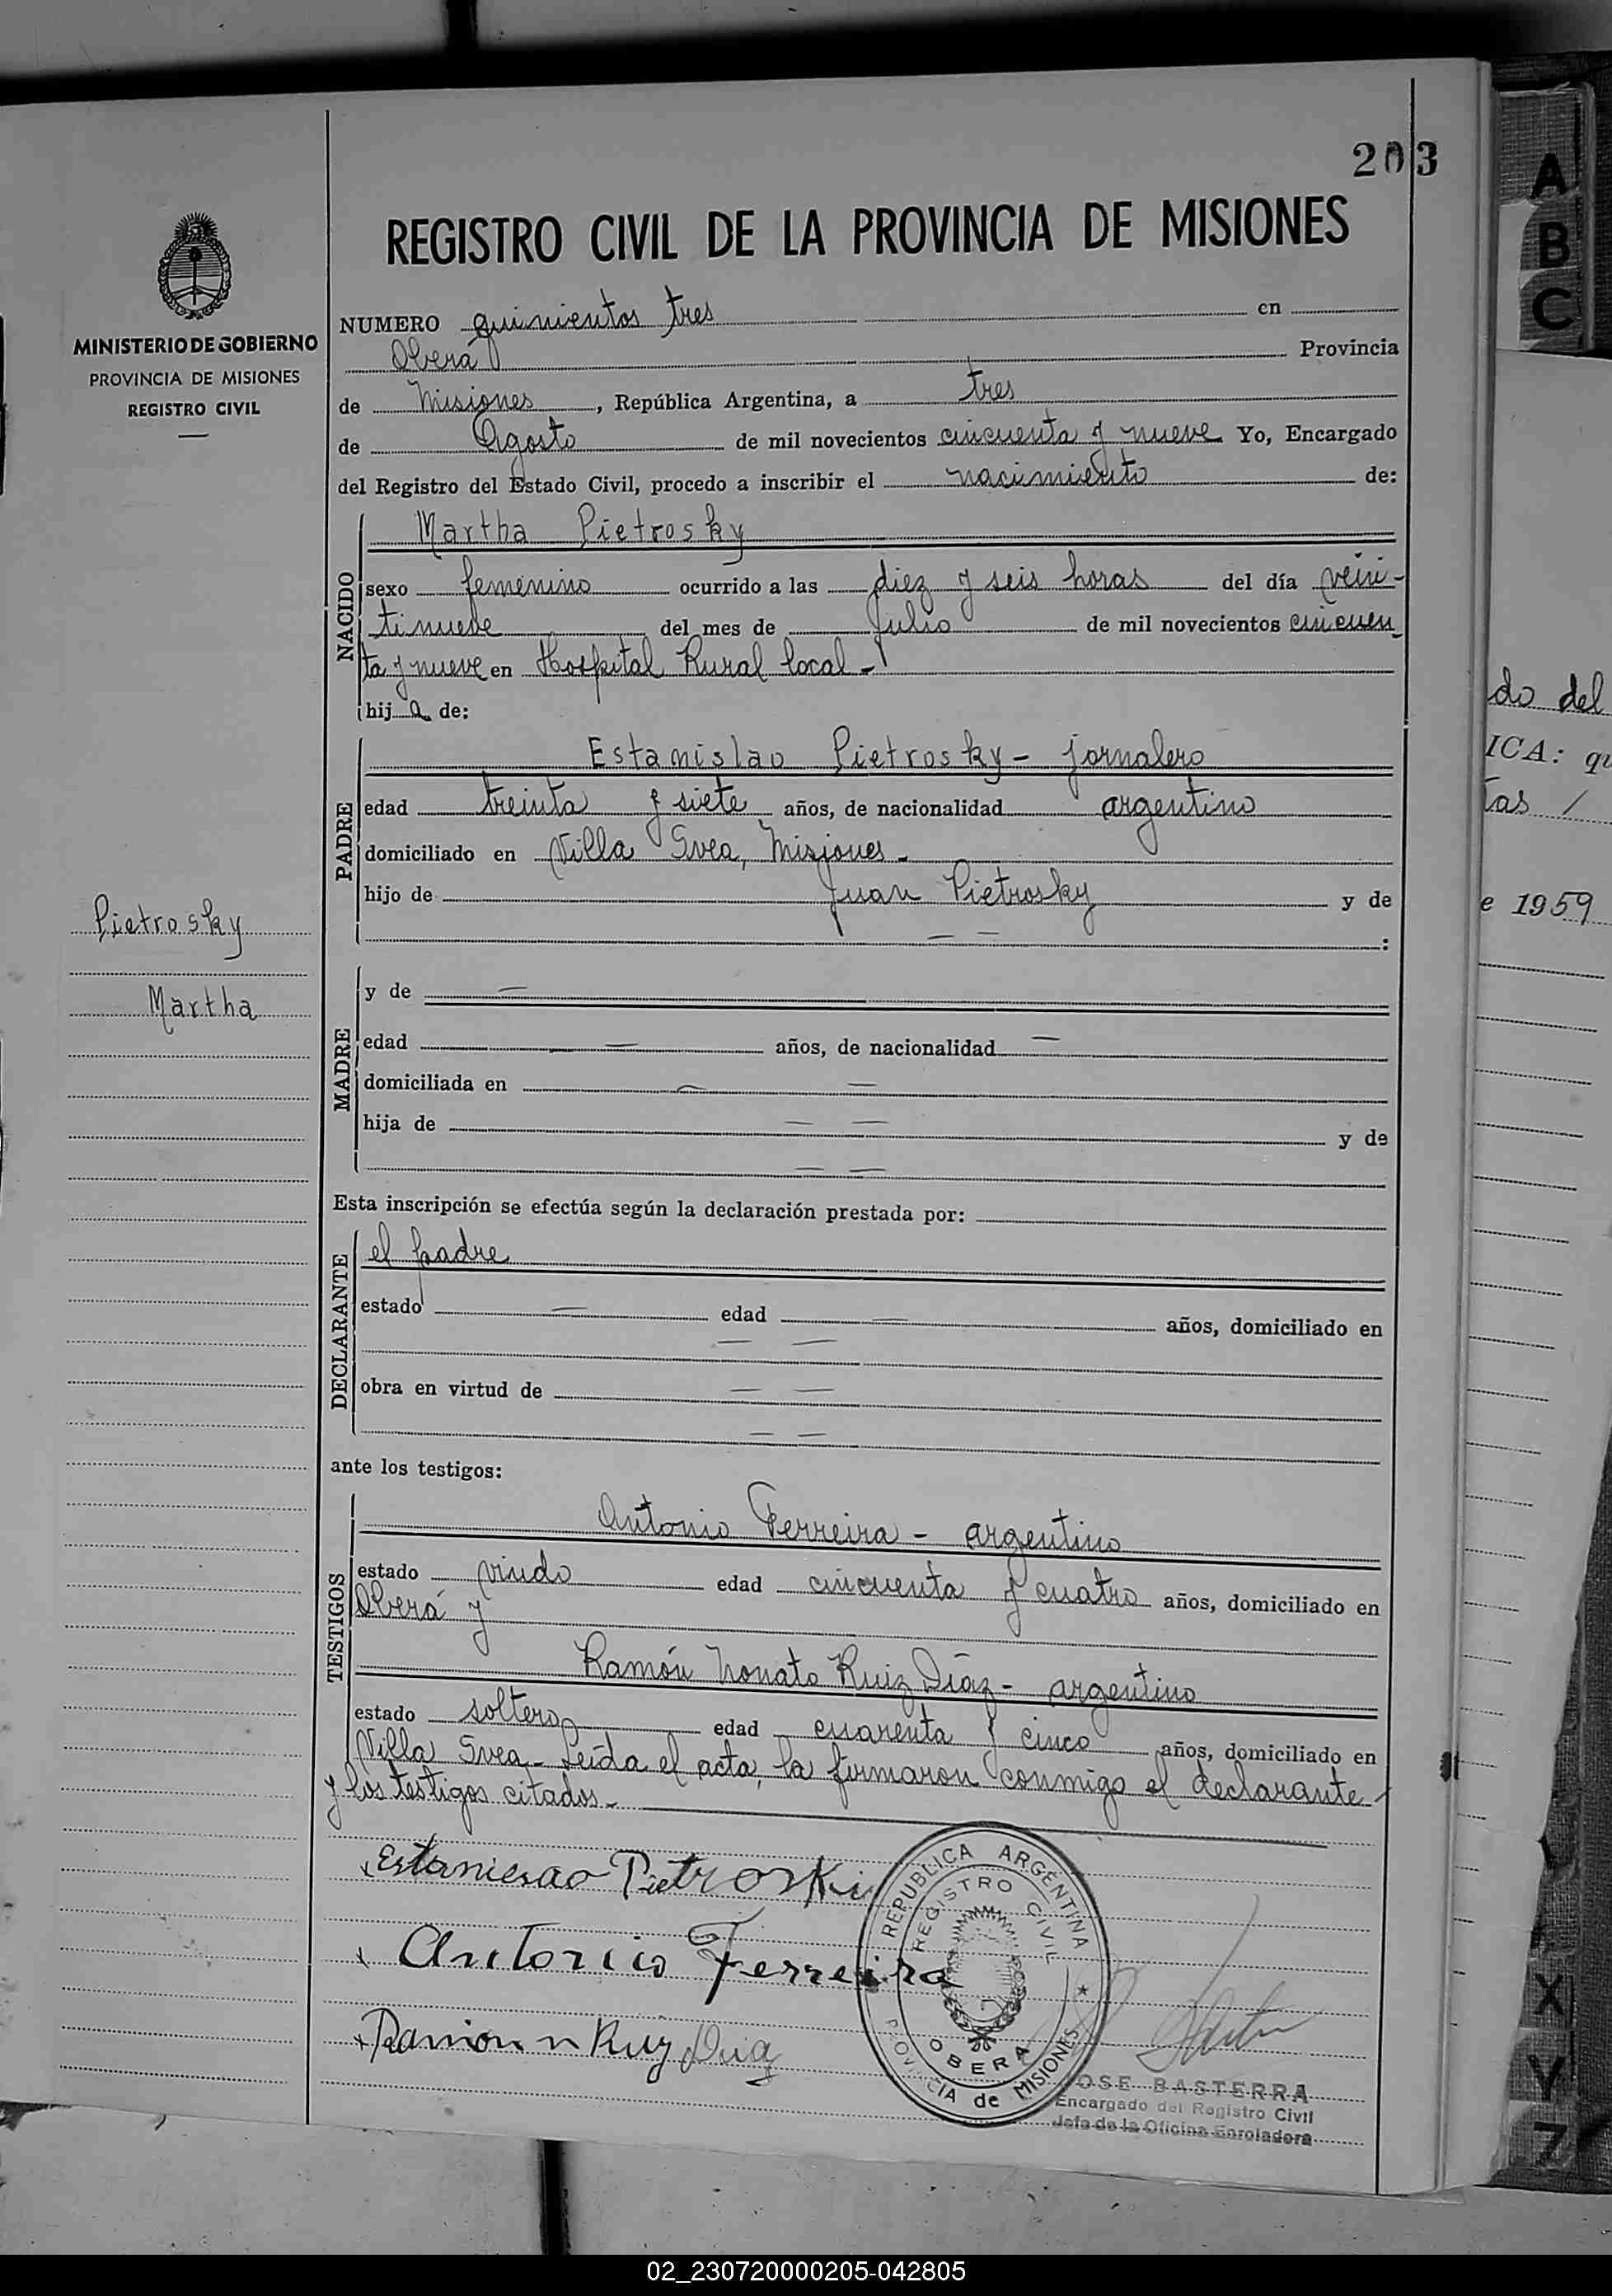 203
REGISTRO CIVIL DE LA PROVINCIA DE MISIONES
MINISTERIO DE GOBIERNO
PROVINCIA DE MISIONES
REGISTRO CIVIL
NUMERO quinientos tres en
Oberá Provincia
de Misiones, República Argentina, a tres
de Agosto de mil novecientos cincuenta y nueve Yo, Encargado
del Registro del Estado Civil, procedo a inscribir el nacimiento de:
NACIDO
Martha Pietrosky
sexo femenino ocurrido a las diez y seis horas del día vein-
tinueve del mes de Julio de mil novecientos cincuen
ta y nueve en Hospital Rural local -
hij a de:
PADRE
Estanislao Pietrosky - jornalero
edad treinta y siete años, de nacionalidad argentino
domiciliado en Villa Svea, Misiones -
hijo de Juan Pietrosky y de
— — :
Pietrosky
Martha
MADRE
y de —
edad — años, de nacionalidad —
domiciliada en — —
hija de — — y de
— —
Esta inscripción se efectúa según la declaración prestada por:
DECLARANTE
el padre
estado — edad — años, domiciliado en
— —
obra en virtud de — —
— —
ante los testigos:
TESTIGOS
Antonio Ferreira - argentino
estado viudo edad cincuenta y cuatro años, domiciliado en
Oberá y
Ramón Nonato Ruiz Díaz - argentino
estado soltero edad cuarenta y cinco años, domiciliado en
Villa Svea - Leída el acta, la firmaron conmigo el declarante
y los testigos citados -
Estanislao Pietroski
Antonio Ferreira
Ramon n Ruiz Diaz
REPUBLICA ARGENTINA
REGISTRO CIVIL
OBERA
PROVINCIA de MISIONES
JOSE BASTERRA
Encargado del Registro Civil
Jefe de la Oficina Enroladora
do del
ICA: qu
tas /
e 1959
A
B
C
X
Y
Z
02_230720000205-042805